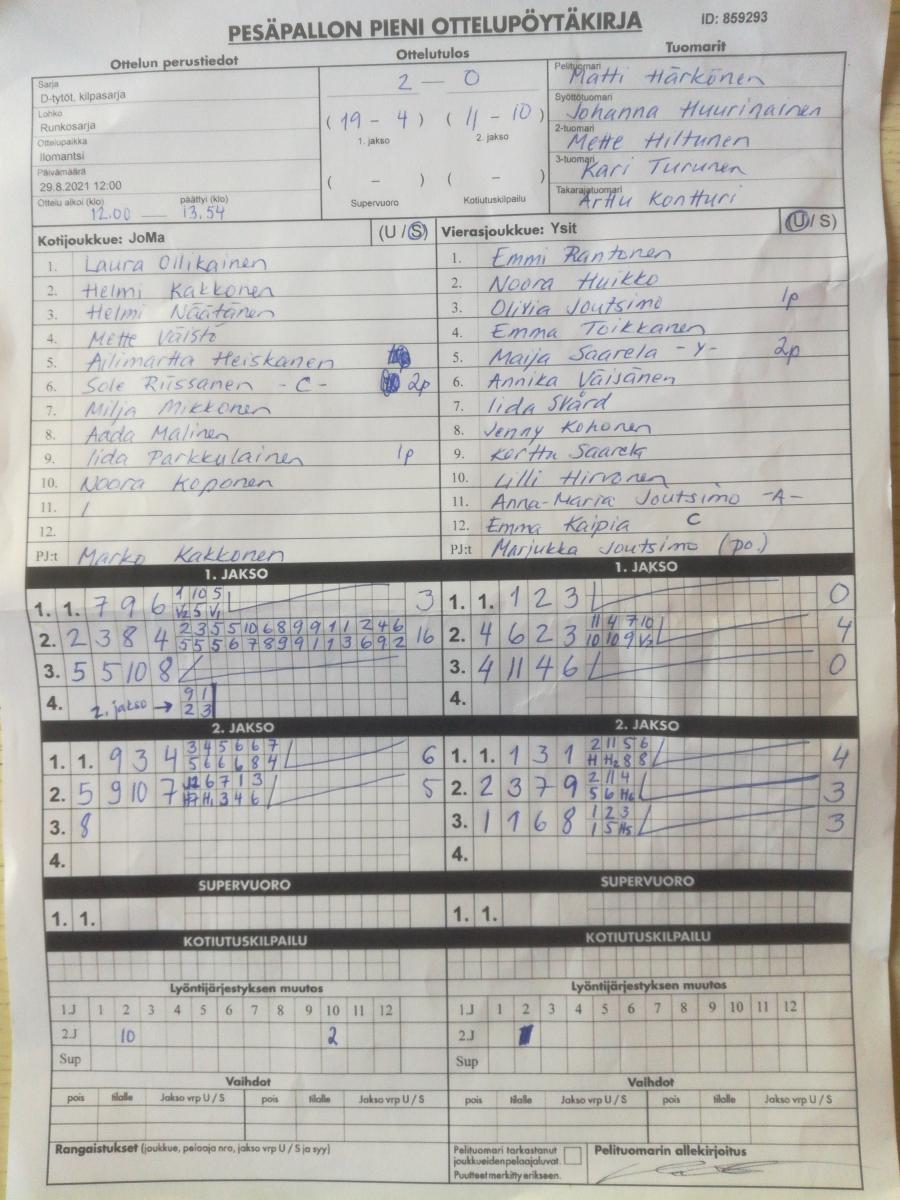 PESÄPALLON PIENI OTTELUPÖYTÄKIRJA ID: 859293
Ottelun perustiedot Ottelutulos Tuomarit
Sarja
D-tytöt, kilpasarja
Lohko
Runkosarja
Ottelupaikka
Ilomantsi
Päivämäärä
29.8.2021 12:00
Ottelu alkoi (klo) päättyi (klo)
12.00 — 13.54
2 — 0
(19 - 4) (11 - 10)
1. jakso 2. jakso
( - ) ( - )
Supervuoro Kotiutuskilpailu
Pelituomari
Matti Härkönen
Syöttötuomari
Johanna Huurinainen
2-tuomari
Mette Hiltunen
3-tuomari
Kari Turunen
Takarajatuomari
Arttu Kontturi
Kotijoukkue: JoMa (U / S)
1. Laura Ollikainen
2. Helmi Kakkonen
3. Helmi Näätänen
4. Mette Väistö
5. Ailimartta Heiskanen
6. Sole Riissanen - C - 2p
7. Milja Mikkonen
8. Aada Malinen
9. Iida Parkkulainen 1p
10. Noora Koponen
11. /
12.
PJ:t Marko Kakkonen
Vierasjoukkue: Ysit (U / S)
1. Emmi Rantonen
2. Noora Huikko
3. Olivia Joutsimo 1p
4. Emma Toikkanen
5. Maija Saarela - Y - 2p
6. Annika Väisänen
7. Iida Svärd
8. Jenny Kohonen
9. Kerttu Saarela
10. Lilli Hirvonen
11. Anna-Maria Joutsimo - A -
12. Emma Kaipia C
PJ:t Marjukka Joutsimo (po.)
1. JAKSO
1. 1. 7 9 6 1 10 5 3
V2 5 V1
2. 2 3 8 4 2 3 5 5 10 6 8 9 9 1 1 2 4 6 16
5 5 5 6 7 8 9 9 1 1 3 6 9 2
3. 5 5 10 8
4. 2. jakso → 9 1
2 3
1. JAKSO
1. 1. 1 2 3 0
2. 4 6 2 3 11 4 7 10 4
10 10 9 V2
3. 4 11 4 6 0
4.
2. JAKSO
1. 1. 9 3 4 3 4 5 6 6 7 6
5 6 6 6 8 4
2. 5 9 10 7 6 7 1 3 5
H1 3 4 6
3. 8
4.
2. JAKSO
1. 1. 1 3 1 2 11 5 6 4
H H2 8 8
2. 2 3 7 9 2 11 4 3
5 6 H6
3. 1 1 6 8 1 2 3 3
1 5 H5
4.
SUPERVUORO
1. 1.
SUPERVUORO
1. 1.
KOTIUTUSKILPAILU
KOTIUTUSKILPAILU
Lyöntijärjestyksen muutos
1.J 1 2 3 4 5 6 7 8 9 10 11 12
2.J 10 2
Sup
Lyöntijärjestyksen muutos
1.J 1 2 3 4 5 6 7 8 9 10 11 12
2.J
Sup
Vaihdot
pois tilalle Jakso vrp U / S pois tilalle Jakso vrp U / S
Vaihdot
pois tilalle Jakso vrp U / S pois tilalle Jakso vrp U / S
Rangaistukset (joukkue, pelaaja nro, jakso vrp U / S ja syy)
Pelituomari tarkastanut
joukkueiden pelaajaluvat.
Puutteet merkitty erikseen.
Pelituomarin allekirjoitus